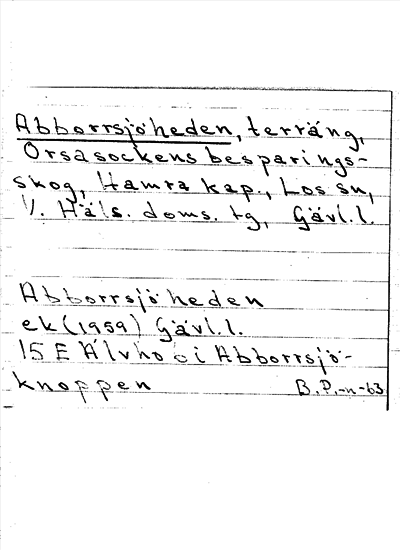 Abborrsjöheden, terräng,
Orsasockens besparings-
skog, Hamra kap., Los sn,
V. Häls. doms. tg, Gävl.l.
Abborrsjöheden
ek (1959) Gävl.l.
15 E Älvho o i Abborrsjö-
knoppen
B.P.-n-63